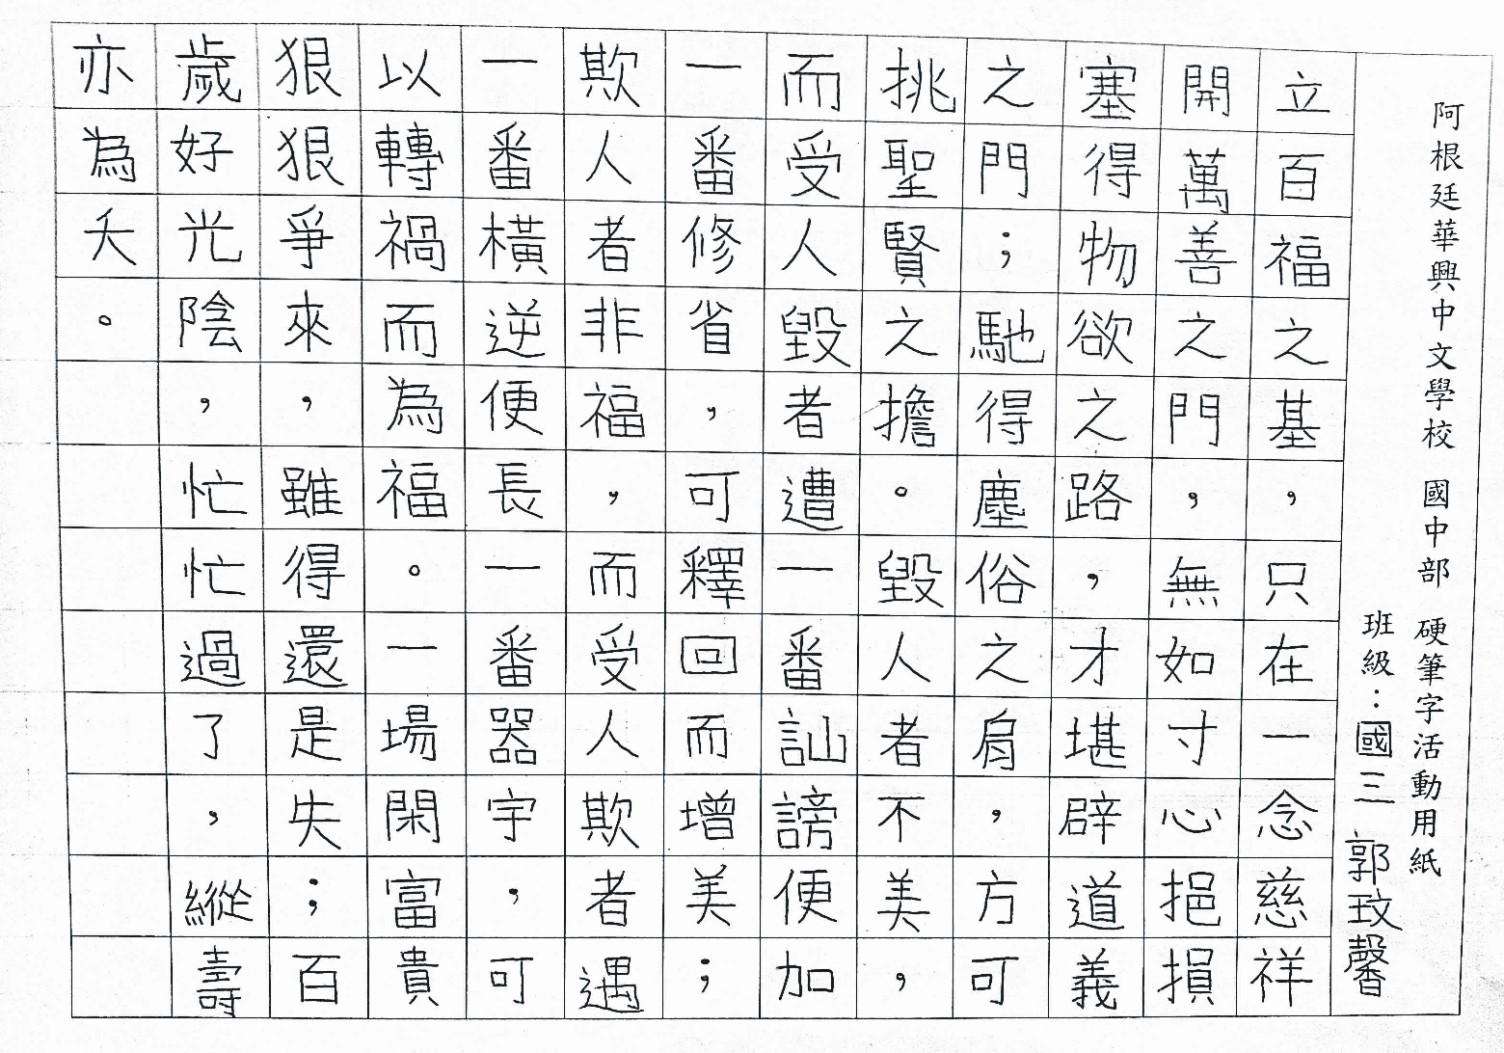 阿根廷華興中文學校 國中部 硬筆字活動用紙
班級：國三 郭玟馨
立百福之基，只在一念慈祥
開萬善之門，無如寸心挹損
塞得物欲之路，才堪辟道義
之門；馳得塵俗之肩，方可
挑聖賢之擔。毀人者不美，
而受人毀者遭一番訕謗便加
一番修省，可釋回而增美；
欺人者非福，而受人欺者遇
一番橫逆便長一番器宇，可
以轉禍而為福。一場閑富貴
狠狠爭來，雖得還是失；百
歲好光陰，忙忙過了，縱壽
亦為夭。